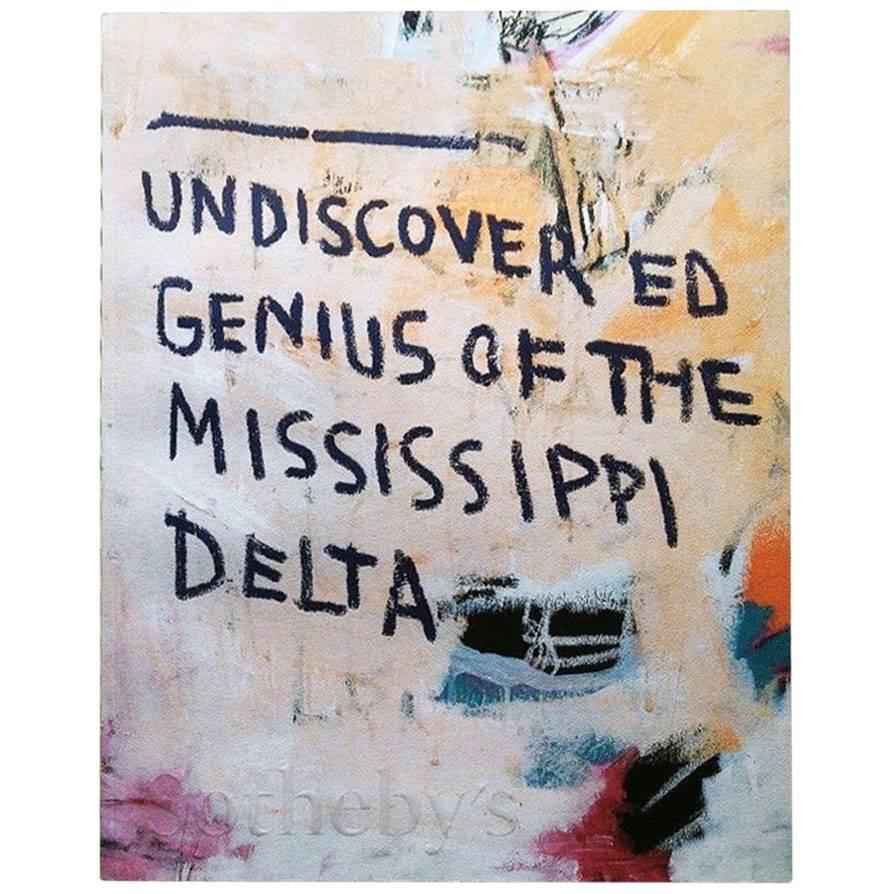 UNDISCOVERED
GENIUS OF THE
MISSISSIPPI
DELTA
Sotheby's